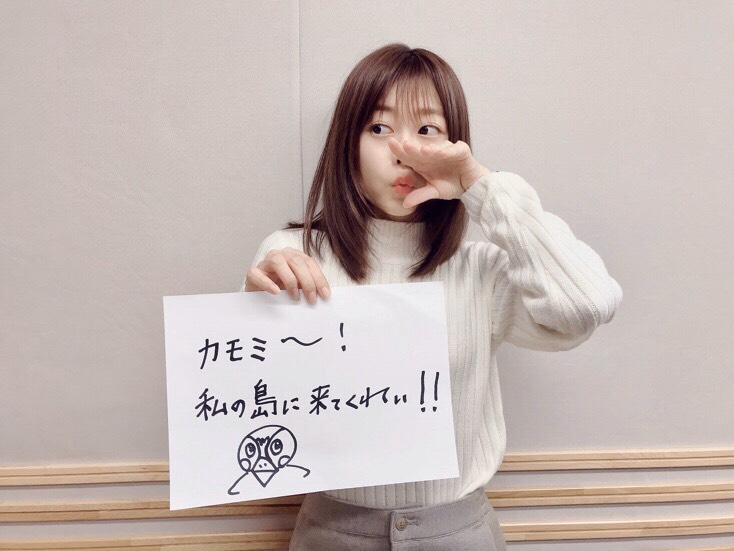 カモミ〜!
私の島に来てくれてぃ!!